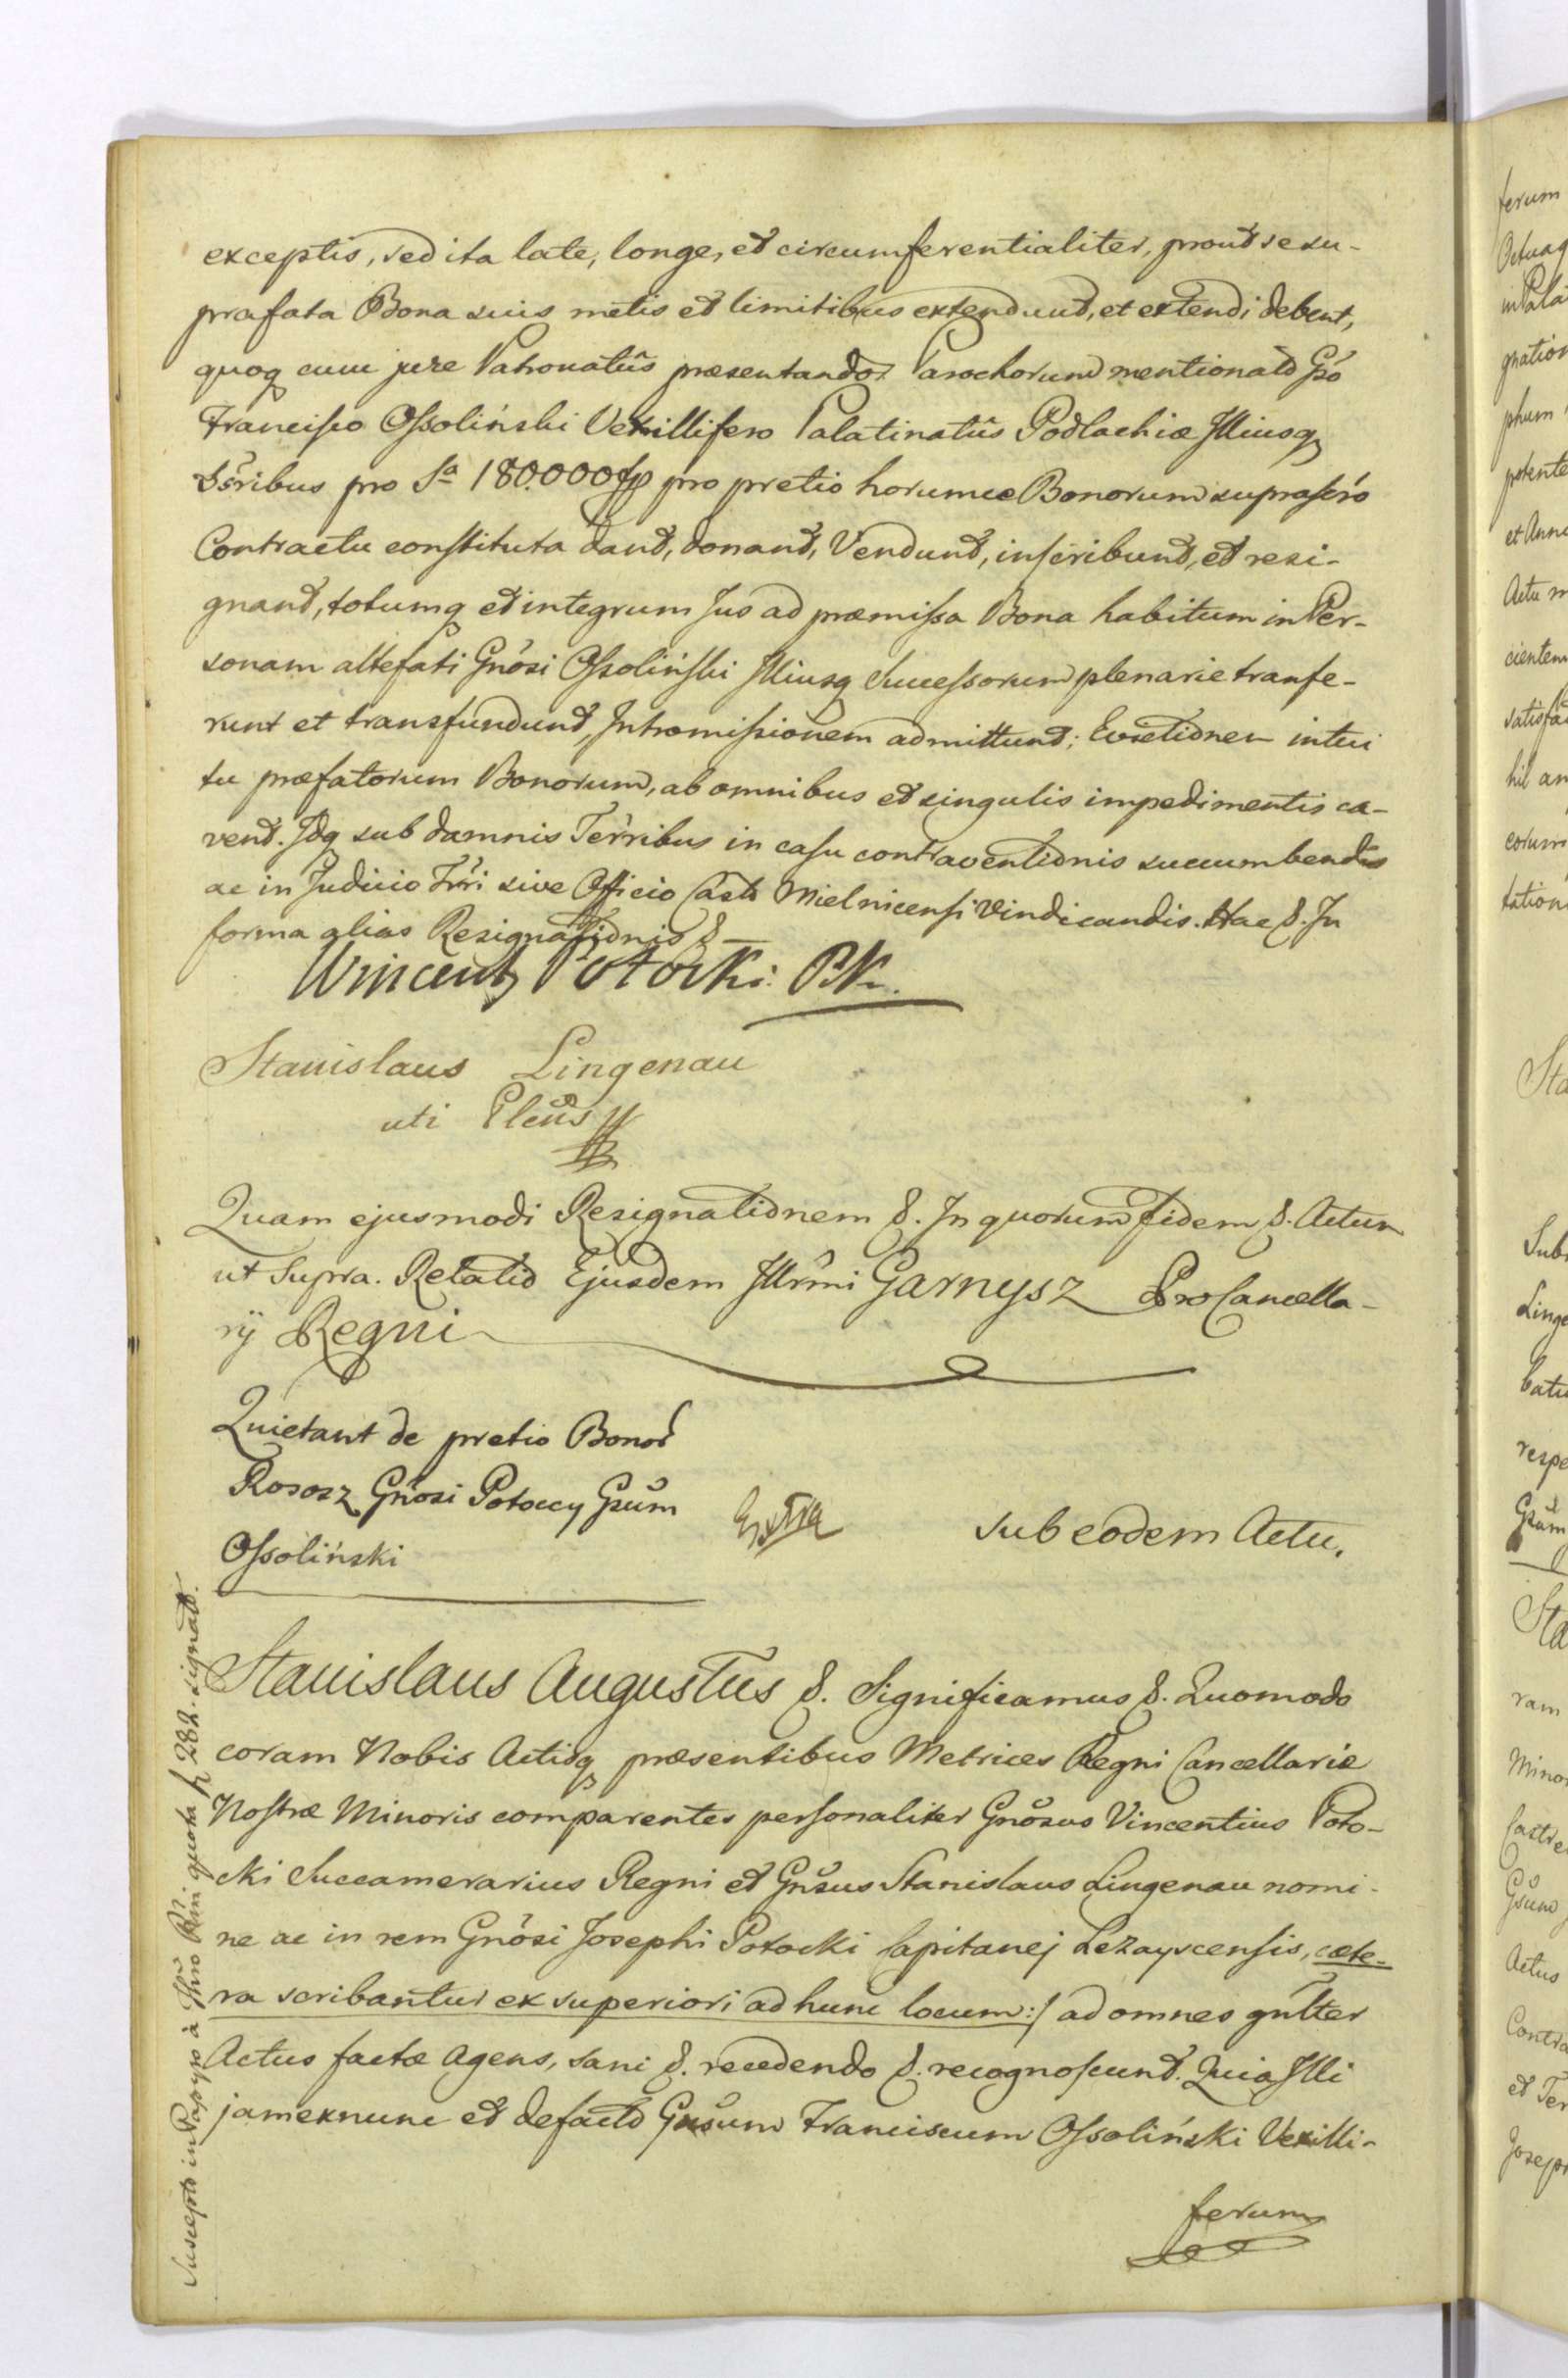 exceptis, sed ita late, longe, et circumferentialiter, prout se su-
prafata Bona suis metis et limitibus extendunt, et extendi debent,
quoq cum jure Patronatûs præsentandor Parochorum mentionato Gso
Francisco Ossoliński Vexillifero Palatinatûs Podlachiæ Illiusq
Ssribus pro Sa 180.000 fp pro pretio horumce Bonorum suprascro
Contractu constituta dant, donant, Vendunt, inscribunt, et resi-
gnant, totumq et integrum Jus ad præmissa Bona habitum in Per-
sonam altefati Gnosi Ossoliński Illiusq Successorum plenarie transfe-
runt et transfundunt, Intromissionem admittunt; Evictionem intui
tu præfatorum Bonorum, ab omnibus et singulis impedimentis ca-
vent. Idq sub damnis Terribus in casu contraventionis succumbendis
ac in Judicio Trri sive Officio Casto Mielnicensi vindicandis. Hac &. In
forma alias Resignationis &
Wincenty Potocki: PK.
Stanislaus Lingenau
uti Plenus
Quam ejusmodi Resignationem &. In quorum fidem &. Actum
ut Supra. Relatio Ejusdem Illrmi Garnysz ProCancella-
rij Regni
Quietant de pretio Bonor
Rososz Gnosi Potoccy Gsum
Ossoliński
Extra
sub eodem Actu.
Stanislaus Augustus &. Significamus &. Quomodo
coram Nobis Actisq præsentibus Metrices Regni Cancellariæ
Nostræ Minoris comparentes personaliter Gnosus Vincentius Poto-
cki Succamerarius Regni et Gnsus Stanislaus Lingenau nomi-
ne ac in rem Gnosi Josephi Potocki Capitanej Lezayscensis, cæte-
ra scribantur ex superiori ad hunc locum:/ ad omnes gnlter
Actus facta Agens, sani &. recedendo &. recognoscunt. Quia Illi
jam ex nunc et de facto Gnsum Franciscum Ossoliński Vexilli-
ferum
Suscepto in Papyro à quota 282. signato.